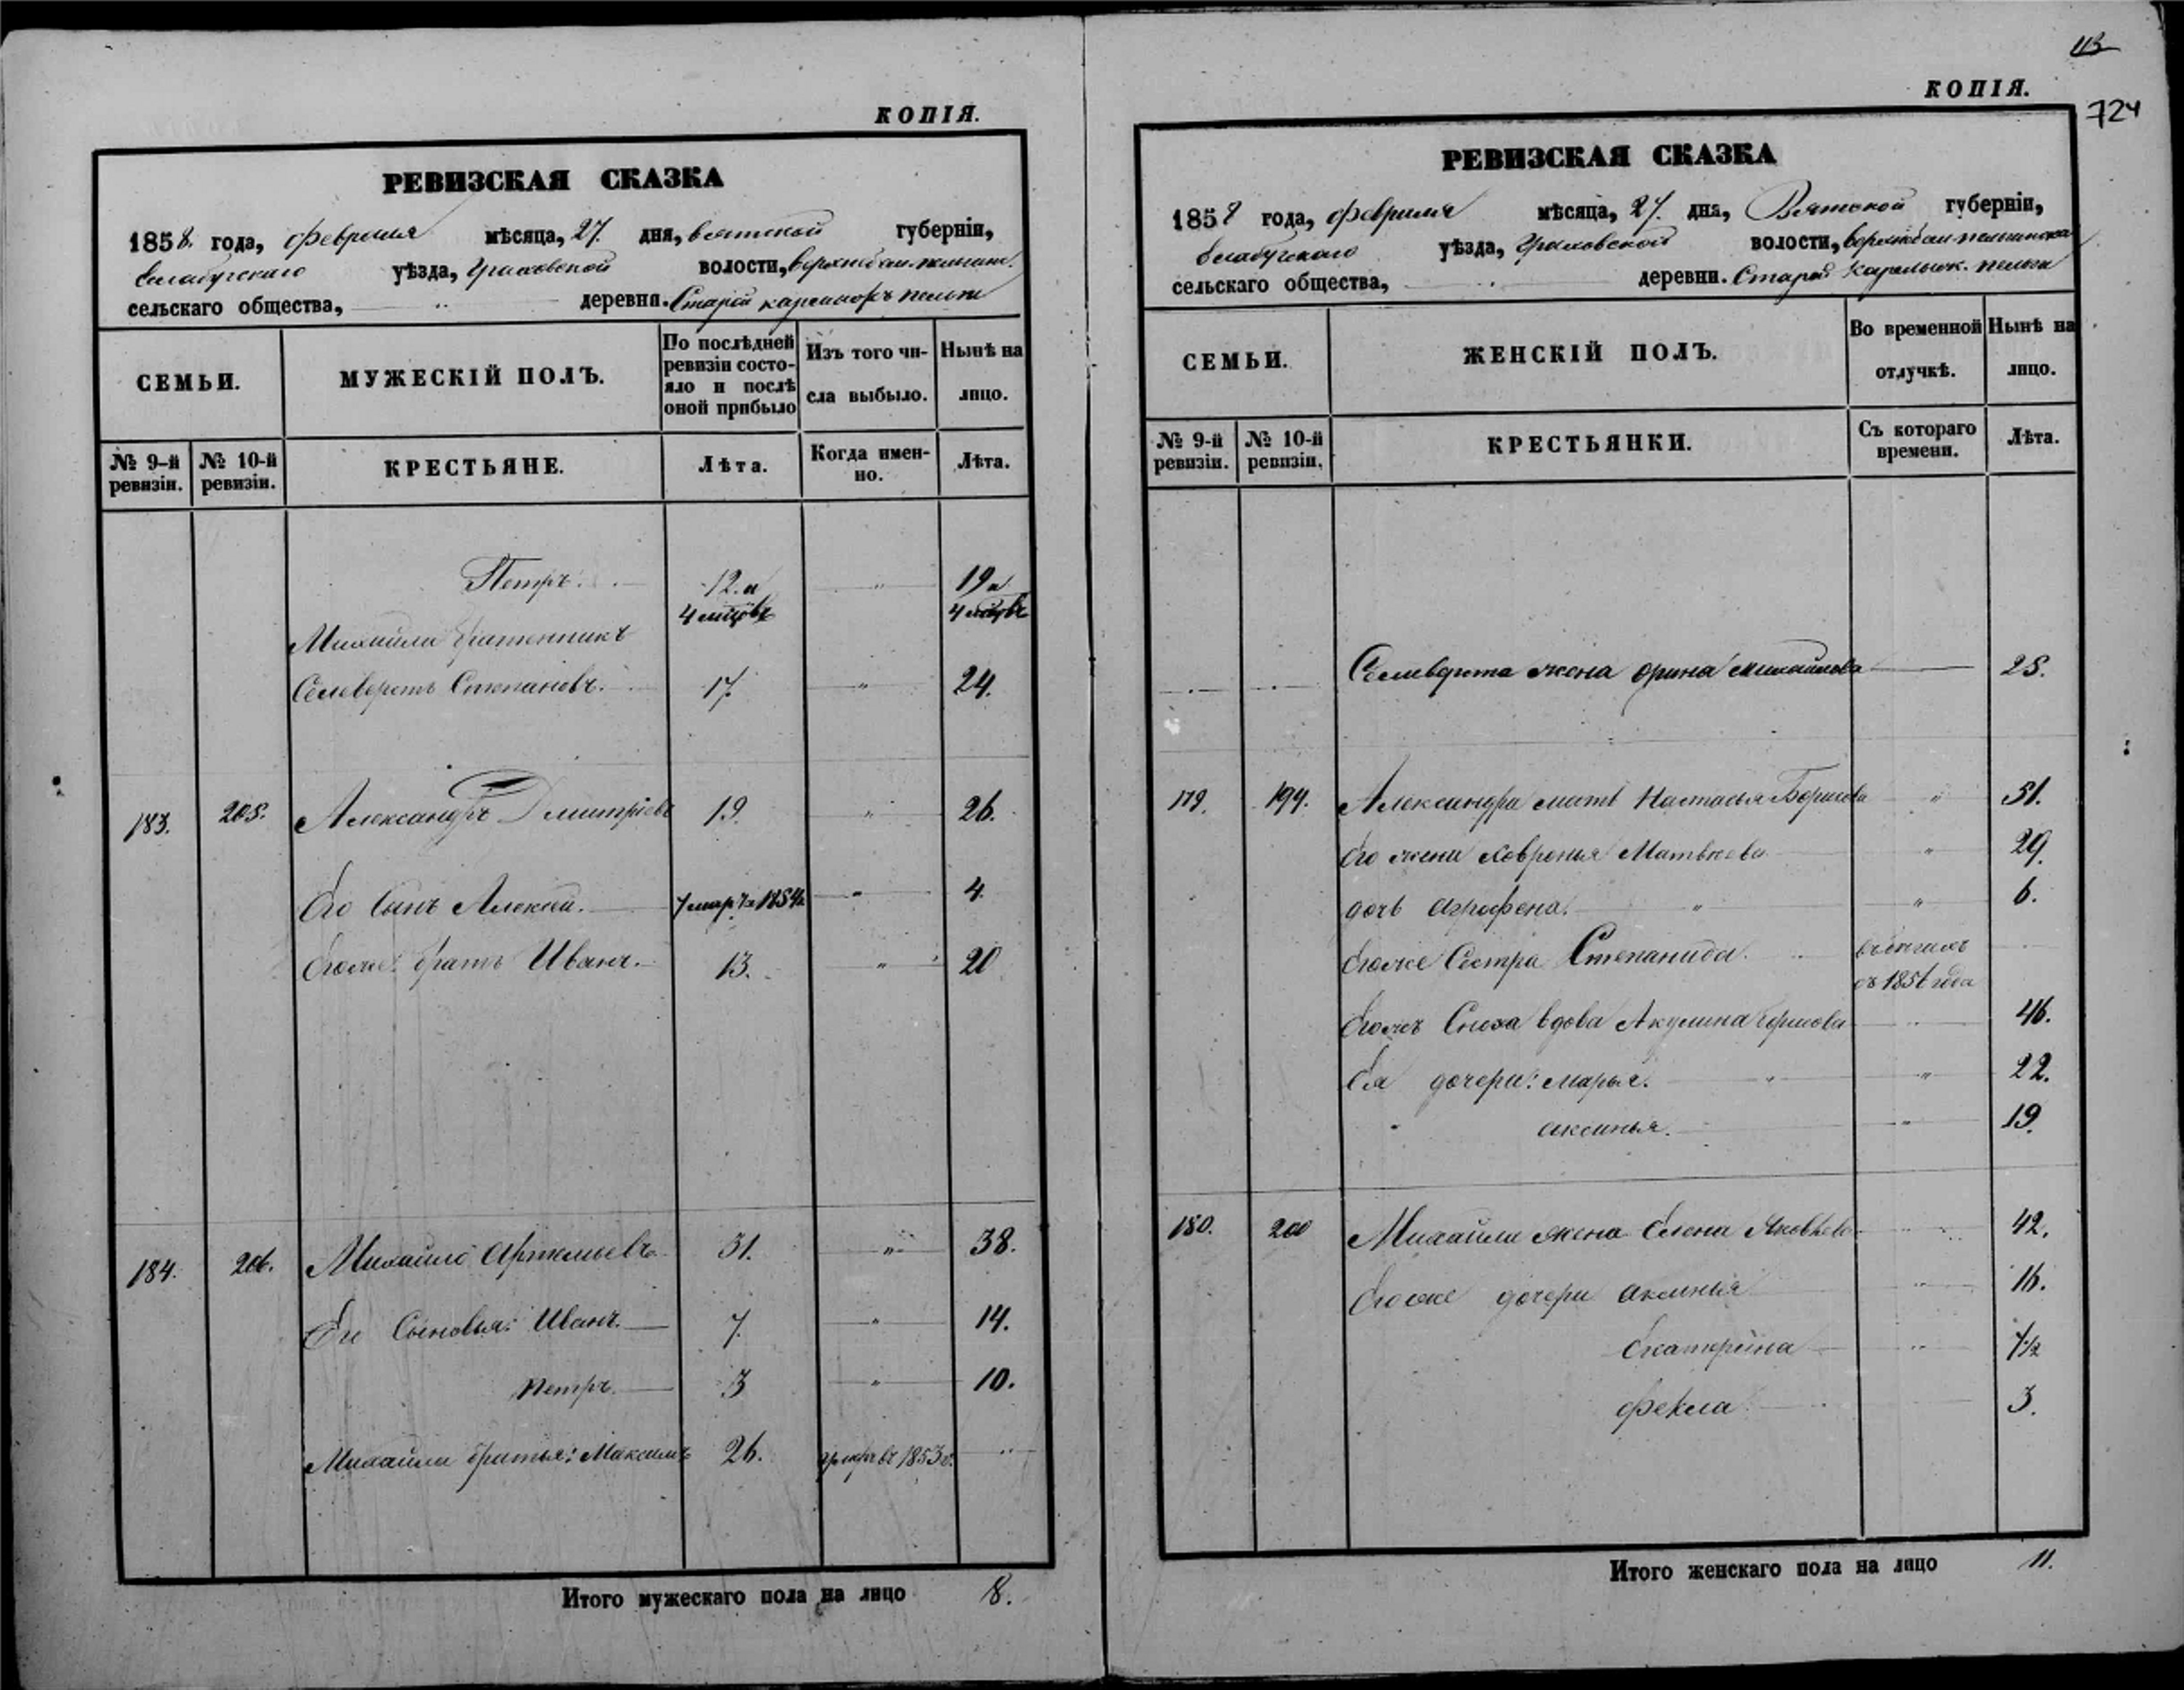 КОПІЯ.
РЕВИЗСКАЯ СКАЗКА
1858. года, февраля мѣсяца, 27. дня, вятской губерніи,
елабугскаго уѣзда, Граховской волости,
сельскаго общества, деревни. Старой
СЕМЬИ.
МУЖЕСКІЙ ПОЛЪ.
По послѣдней ревизіи состояло и послѣ оной прибыло
Изъ того числа выбыло.
Нынѣ на лицо.
№ 9-й ревизіи.
№ 10-й ревизіи.
КРЕСТЬЯНЕ.
Лѣта.
Когда именно.
Лѣта.
Петръ. 12. и 4 мцовъ " 19 и 4 мцовъ
Михайлы братенникъ
Селиверстъ Степановъ. 17. " 24.
183. 205. Александръ Дмитріевъ 19. " 26.
Его Сынъ Алексей. 1854 " 4.
Егоже братъ Иванъ. 13. " 20
184. 206. Михайло Артемьевъ 31. " 38.
Его Сыновья: Иванъ. 7. " 14.
Петръ. 3 " 10.
Михайлы братья: Максимъ 26. умеръ въ 1853 г. "
Итого мужескаго пола на лицо 8.
113
КОПІЯ.
724
РЕВИЗСКАЯ СКАЗКА
1858 года, февраля мѣсяца, 27. дня, Вятской губерніи,
елабугскаго уѣзда, Граховской волости,
сельскаго общества, деревни. Старой
СЕМЬИ.
ЖЕНСКІЙ ПОЛЪ.
Во временной отлучкѣ.
Нынѣ на лицо.
№ 9-й ревизіи.
№ 10-й ревизіи.
КРЕСТЬЯНКИ.
Съ котораго времени.
Лѣта.
Селиверста жена Орина Михайлова 25.
179. 199. Александра мать Настасья Борисова " 51.
Его жена Ховронья Матвѣева " 29.
дочь Аграфена. " " 6.
Егоже Сестра Степанида. съ 1856 года
Егожъ Сноха вдова Акулина Борисова " 46.
Ея дочери: Марья. " " 22.
Аксинья. " 19.
180. 200 Михайлы жена Елена Яковлева " 42.
Егоже дочери Аксинья " 16.
Екатерина " 7 1/2
Фекла 3.
Итого женскаго пола на лицо 11.